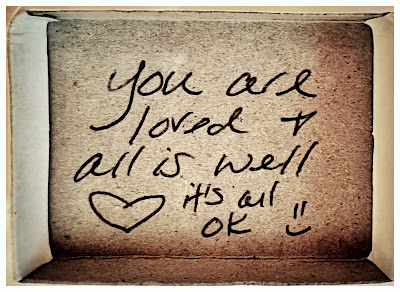 you are
loved +
all is well
it's all
OK